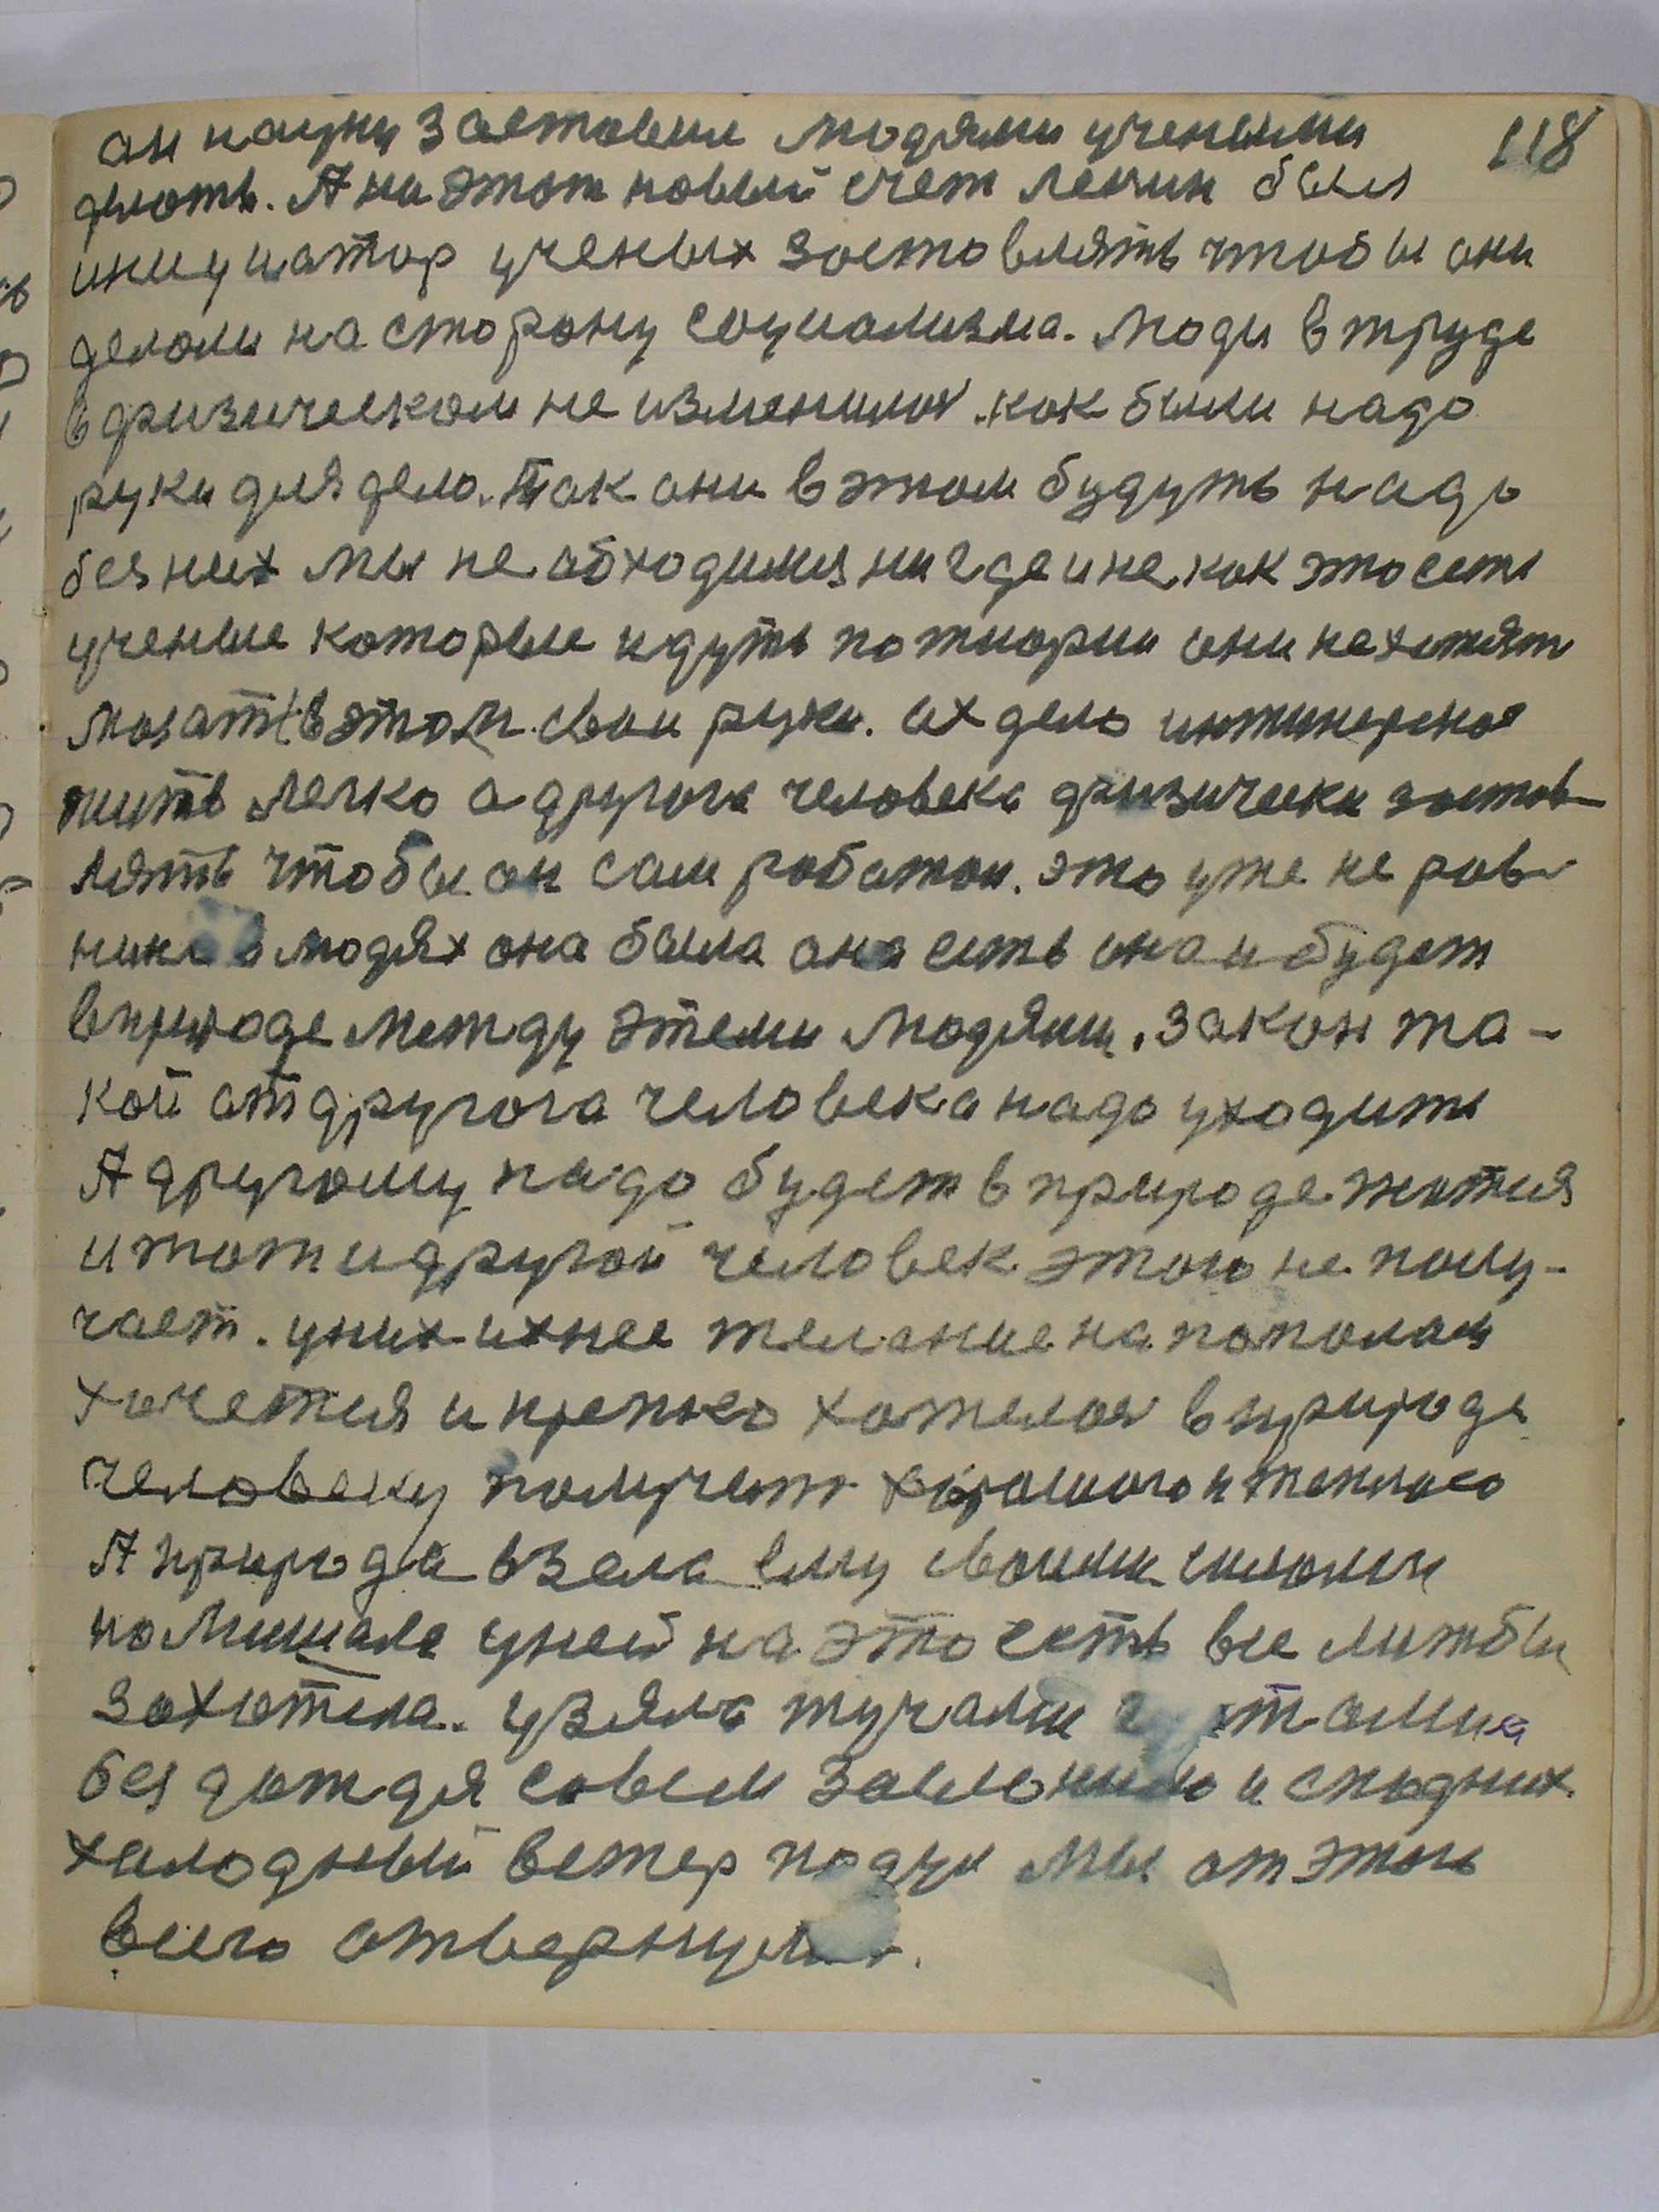 118
он науку заставил людями учеными
делоть. А на этот новый счет Ленин был
инициатор ученых зоставлять чтобы они
делали на сторону социализма. люди в труде
в физическом не изменилос. как были надо
руки для дела. так они в этом будуть надо
без них мы не обходимся ни где и не как это есть
ученые которые идуть по тиории они не хотят
мозать в этом свои руки. их дело интинерное
жить легко а другога человека физически застав-
лять чтобы он сам работал. это уже не рав
в людях она была она есть она и будет
в природе между этеми людями. Закон та-
кой от другога человека надо уходить
А другому надо будет в природе жотся
и тот и другой человек этого не полу-
чает. у них ихнее желание на пополам
хочется и крепко хотелос в природе
человеку получить хорошого и теплого
А природа взела ему своими силами
помишала у ней на это есть все лижбы
захотела. узяла тучами
без дождя совсем заслонила и сподних
халодный ветер подул мы от этого
всего